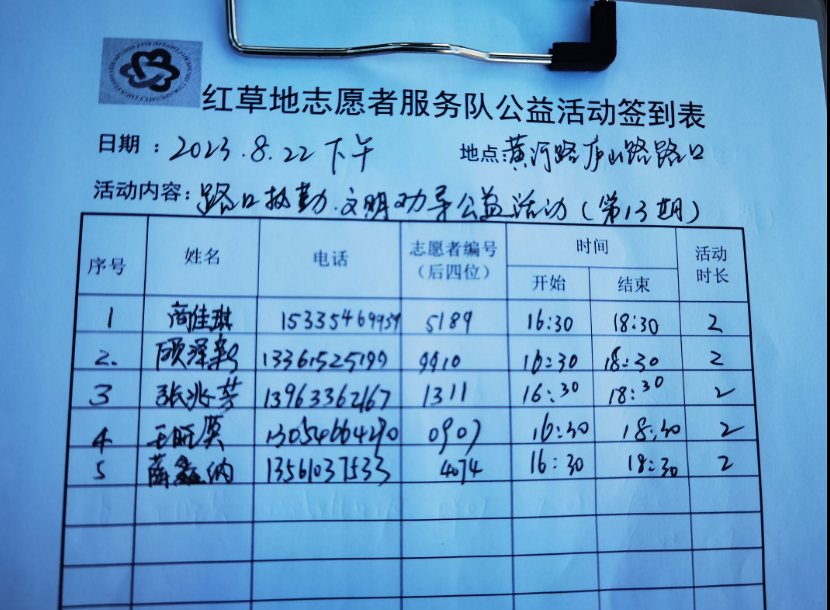 红草地志愿者服务队公益活动签到表
日期：2023.8.22下午 地点:黄河路庐山路路口
活动内容：路口执勤.文明劝导公益活动(第13期)
序号 姓名 电话 志愿者编号（后四位） 时间 开始 结束 活动时长
1 商佳琪 15335469959 5189 16:30 18:30 2
2. 顾泽新 13361525199 9910 16:30 18:30 2
3 张兆芳 13963362167 1311 16:30 18:30 2
4 王旺英 13054664290 0907 16:30 18:30 2
5 薛鑫纳 13561037533 4074 16:30 18:30 2